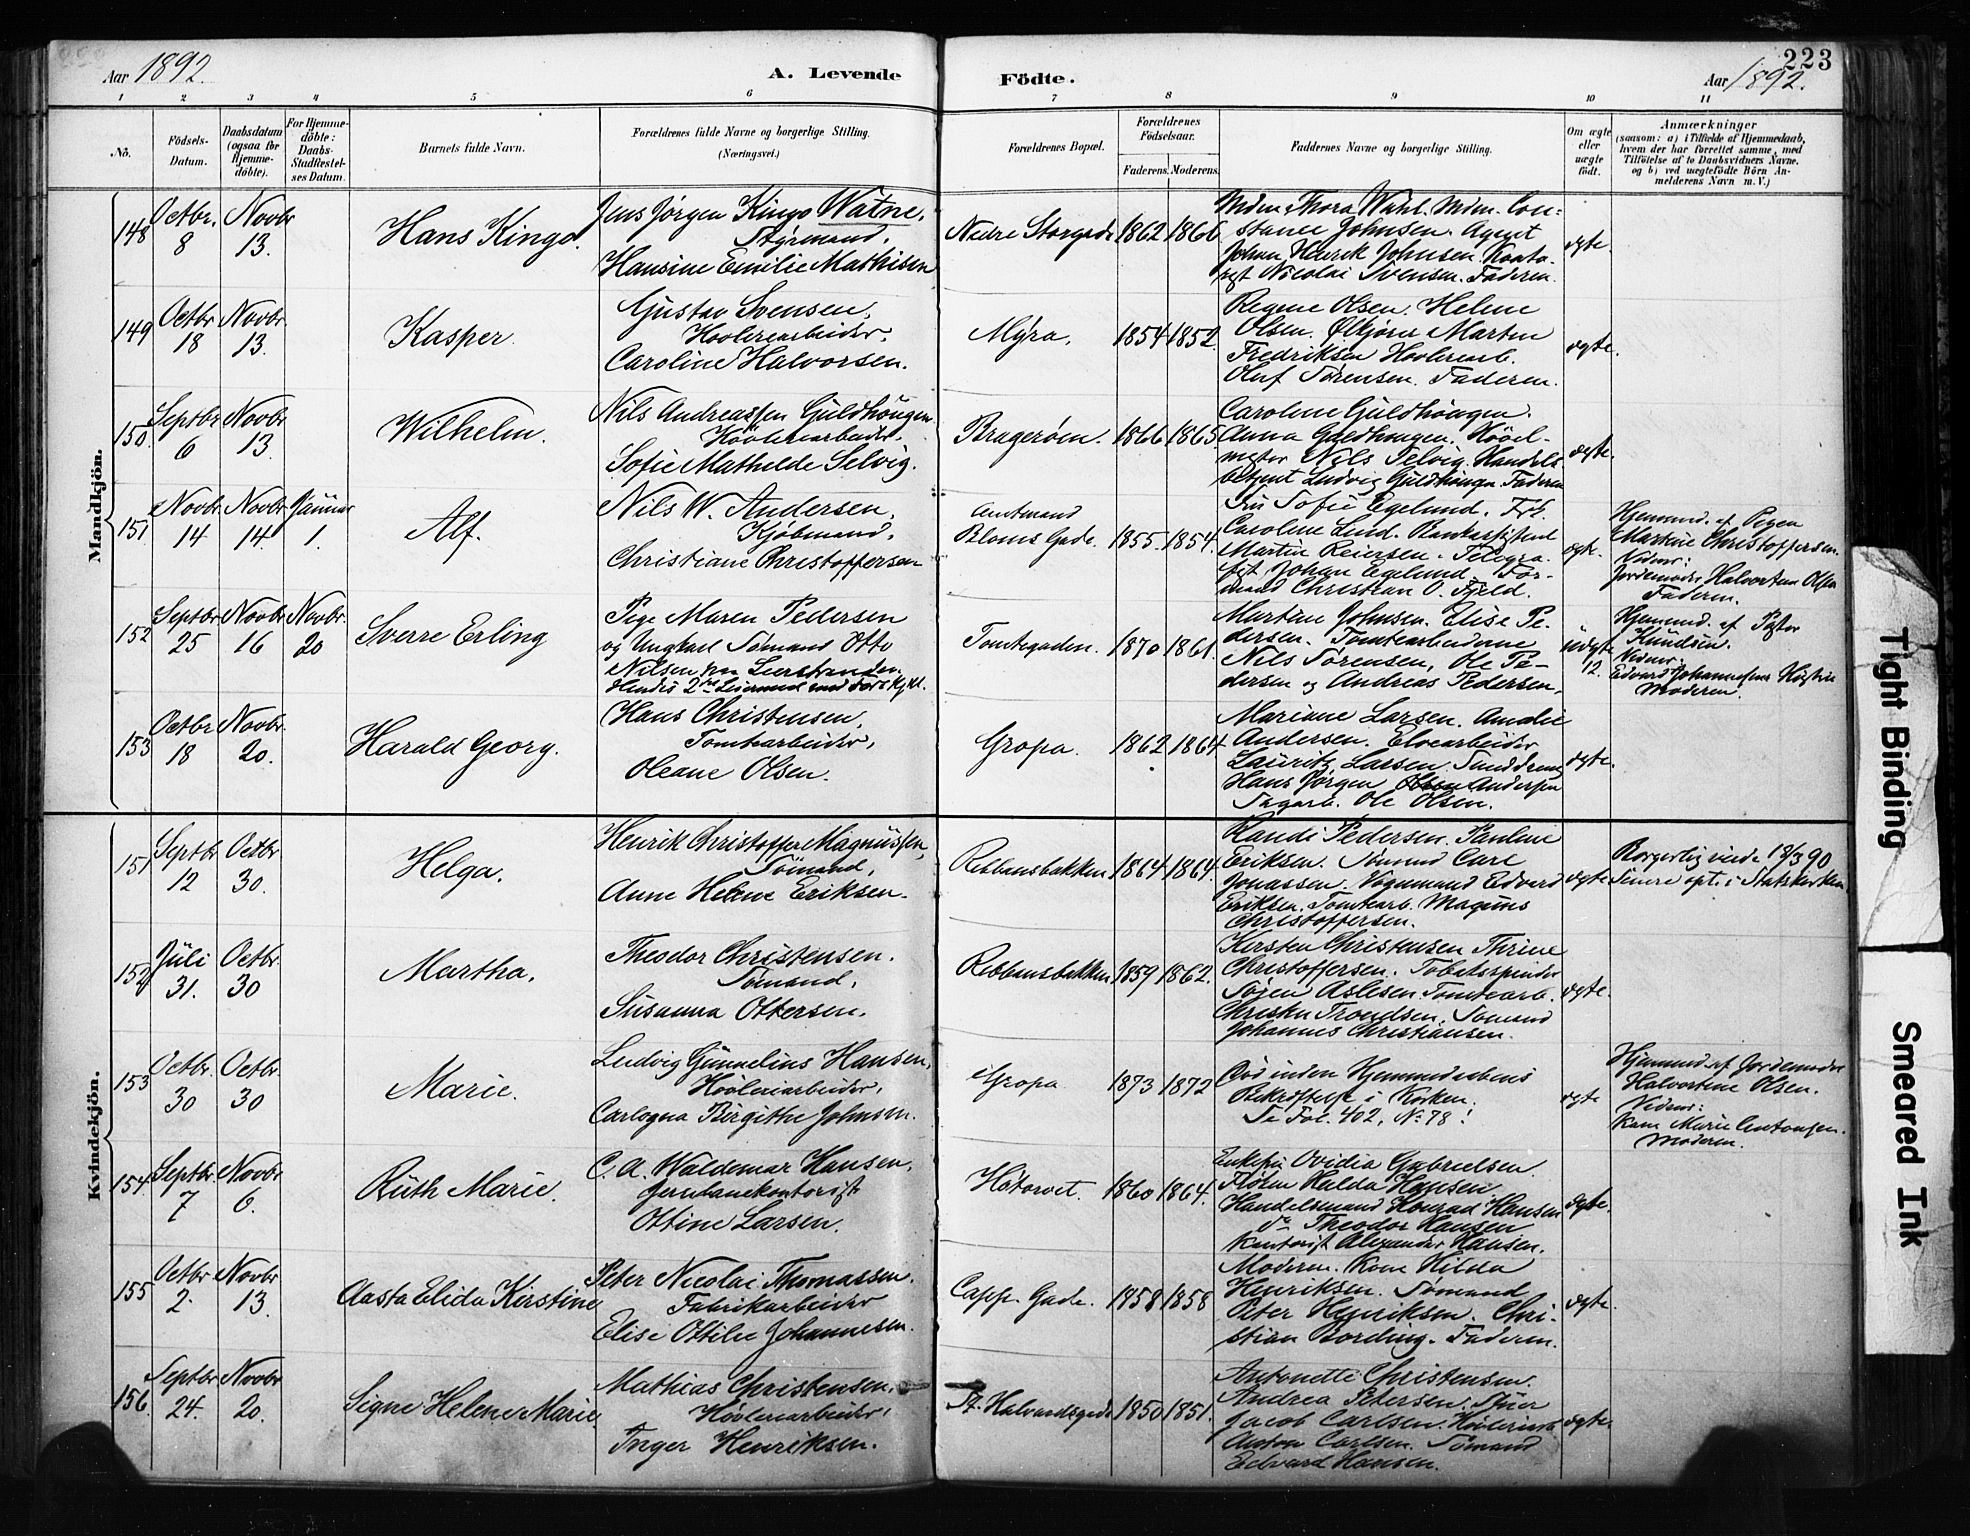 223
Aar 1892.
A. Levende
Födte.
Aar 1892.
1 2 3 4 5 6 7 8 9 10 11
No.
Födsels-Datum.
Daabsdatum (ogsaa for Hjemme-döbte).
For Hjemme-döbte: Daabs-Stadfæstel-ses Datum.
Barnets fulde Navn.
Forældrenes fulde Navne og borgerlige Stilling. (Næringsvei.)
Forældrenes Bopæl.
Forældrenes Födselsaar.
Faderens. Moderens.
Faddernes Navne og borgerlige Stilling.
Om ægte eller uægte födt.
Anmærkninger
(saasom: a) i Tilfælde af Hjemmedaab,
hvem der har forrettet samme, med
Tilföielse af to Daabsvidners Navne.
og b) ved uægtefödte Börn An-
melderens Navn m. V.)
Mandkjön.
148
Octbr. 8
Novbr 13.
Hans Kingo.
Jens Jørgen Kingo Watne,
Styrmand,
Hansine Emilie Mathisen
Nedre Storgade
1862 1866
Mdm. Thora Wahl. Mdm. Con-
stance Johnsen. Agent
Johan Henrik Johnsen. Konto-
rist Nicolai Svensen. Faderen.
ægte.
149
Octbr 18
Novbr. 13.
Kasper.
Gustav Svensen,
Høvleriarbeider,
Caroline Halvorsen.
Myra,
1854 1852.
Regine Olsen. Helene
Olsen. Ølkjører Martin
Fredriksen Høvleriarb.
Oluf Sørensen. Faderen.
ægte.
150.
Septbr 6
Novbr 13.
Wilhelm.
Nils Andreassen Guldhaugen
Høvleriarbeider,
Sofie Mathilde Selvig.
Bragerøen.
1866 1865.
Caroline Guldhaugen.
Anna Guldhaugen. Høvel-
mester Nils Selvig. Handels-
betjent Ludvig Guldhaugen. Faderen
ægte.
151
Novbr. 14
Novbr. 14.
Januar 1.
Alf.
Nils W. Andersen,
Kjøbmand,
Christiane Christoffersen
Amtmand
Bloms Gade.
1855. 1854.
Fru Sofie Egelund. Frk.
Caroline Lund. Bankassistent
Martin Reiersen. Telegra-
fist Johan Egelund. For-
mand Christian O. Fjeld.
ægte.
Hjemmed. af Pigen
Martine Christoffersen.
Vidner:
Jordemoder Halvortine Olsen
Faderen.
152
Septbr 25
Novbr. 16
Novbr. 20
Sverre Erling
Pige Maren Pedersen
og Ungkarl Sømand Otto
Nilsen fra Lierstranden.
Hendes 2det Leiermaal med forskjel.
Tomtegaden.
1870 1861.
Martine Johnsen. Elise Pe-
dersen. Tomtearbeiderne
Nils Sørensen, Ole Pe-
dersen og Andreas Pedersen,
uægte
12.
Hjemmed. af Pastor
Knudsen.
Vidner:
Edvard Johannesens Hustru
Moderen.
153
Octbr. 18
Novbr. 20.
Harald Georg.
Hans Christensen,
Tomtearbeider,
Oleane Olsen.
Gropa.
1862 1864.
Mariane Larsen. Amalie
Andersen. Elvearbeider
Lauritz Larsen. Sanddreng
Hans Jørgen Andersen
Sagarb. Ole Olsen.
ægte.
Kvindekjön.
151
Septbr 12
Octbr. 30.
Helga.
Henrik Christoffer Magnussen,
Sømand,
Anne Helene Eriksen.
Rebbansbakken
1864 1864.
Randi Pedersen. Pauline
Eriksen. Sømand Carl
Jonassen. Vognmand Edvard
Eriksen. Tomtearb. Magnus
Christoffersen.
ægte
Borgerlig viede 18/3 90
Senere opt. i Statskirken.
152
Juli 31.
Octbr. 30
Martha.
Theodor Christensen.
Sømand,
Susanna Ottersen.
Rebbansbakken
1859 1862.
Kirsten Christensen Thrine
Christoffersen. Tobaksspinder
Søren Aslesen. Tomtearb.
Christen Trondsen. Sømand
Johannes Christiansen.
ægte.
153
Octbr. 30
Octbr. 30
Marie.
Ludvig Gunnelius Hansen,
Høvleriarbeider,
Carlogna Birgithe Johnsen.
Gropa
1873 1872
Død inden Hjemmedaabens
Bekræftelse i Kirken.
Se Fol. 402, No. 78!
ægte
Hjemmed. af Jordemoder
Halvortine Olsen.
Vidner:
Kone Marie Antonsen.
Moderen.
154.
Septbr. 7
Novbr 6.
Ruth Marie.
C. A. Waldemar Hansen,
Jernbanekontorist
Ottine Larsen.
Høtorvet.
1860 1864.
Enkefru Ovidia Gabrielsen
Frøken Hulda Hansen
Handelsmand Konrad Hansen
do Theodor Hansen
Kontorist Alexander Hansen.
ægte.
155
Octbr 2.
Novbr. 13.
Aasta Elida Kirstine
Peter Nicolai Thomassen.
Fabrikarbeider
Elise Ottilie Johannesen.
Capp. Gade.
1858 1858
Moderen. Kone Hilda
Henriksen. Sømand
Peter Henriksen. Chri-
stian Bording. Faderen.
ægte.
156.
Septbr 24.
Novbr 20.
Signe Helene Marie
Mathias Christensen,
Høvleriarbeider,
Inger Henriksen.
St. Halvardsgade
1850 1851.
Antonette Christensen.
Andrea Petersen.
Jacob Carlsen. Høvleriarb.
Anton Carlsen. Sømand
Edvard Hansen.
ægte.
Tight Binding
Smeared Ink